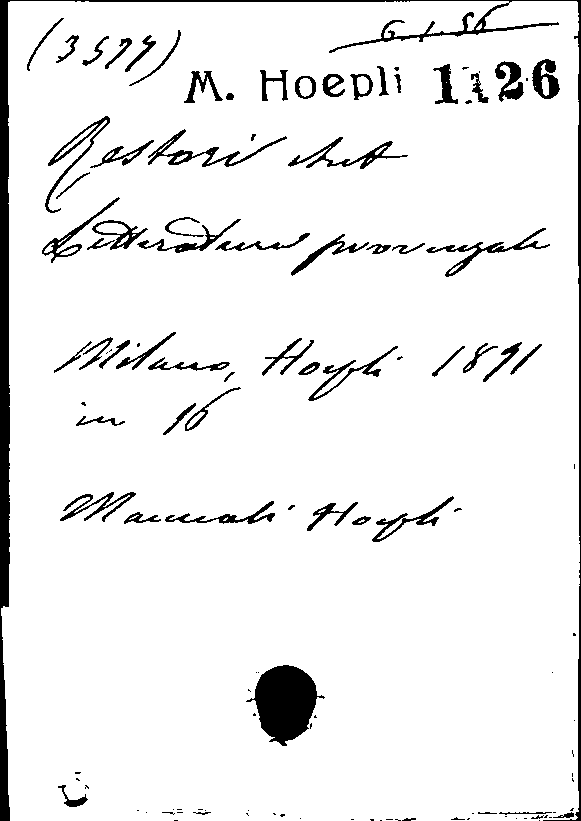 6.1.56
(3577)
M. Hoepli 1126
Restori Ant
Letteratura provenzale
Milano, Hoepli 1891
in 16
Manuali Hoepli